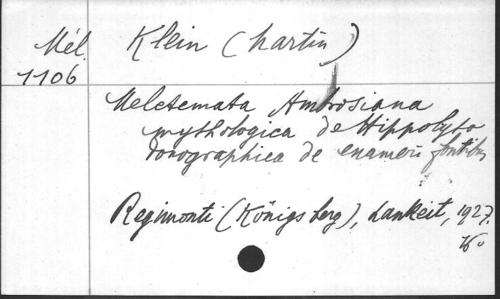 Mél. Klein (Martin)
1106
Meletemata Ambrosiana
mythologica de Hippolyto
doxographica de Exameri fontibus
Regimonti (Königsberg), Lankeit, 1927.
16°